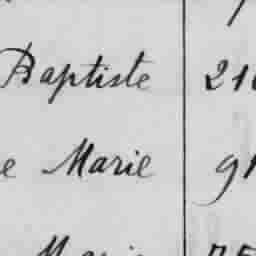 Baptiste 21
e Marie 91